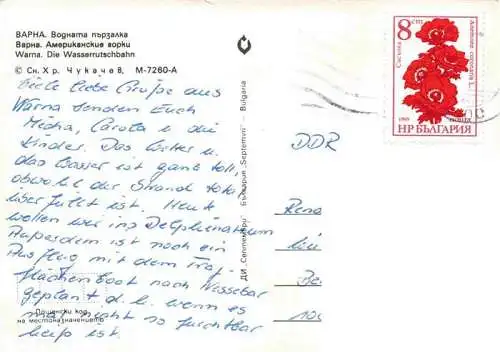 ВАРНА. Водната пързалка
Варна. Американские горки
Warna. Die Wasserrutschbahn
© Сн. Х р. Ч у к а ч е в, М-7260-А
Viele liebe Grüße aus
Warna senden Euch
Micha, Carola u. die
Kinder. Das Wetter u.
das Wasser ist ganz toll,
obwohl der Strand total
überfüllt ist. Heute
wollen wir ins Delphinarium
Außerdem ist noch ein
Ausflug mit dem Trag-
flächenboot nach Nessebar
geplant d.h. wenn es
mal nicht so furchtbar
heiß ist.
Пощенски код
на местоназначението
ДИ „Септември“ България „Septemvri“ - Bulgaria
8 СТ
Съсънка
Anemone coronaria L.
1986
ПОЩА
НР БЪЛГАРИЯ
DDR
Rena